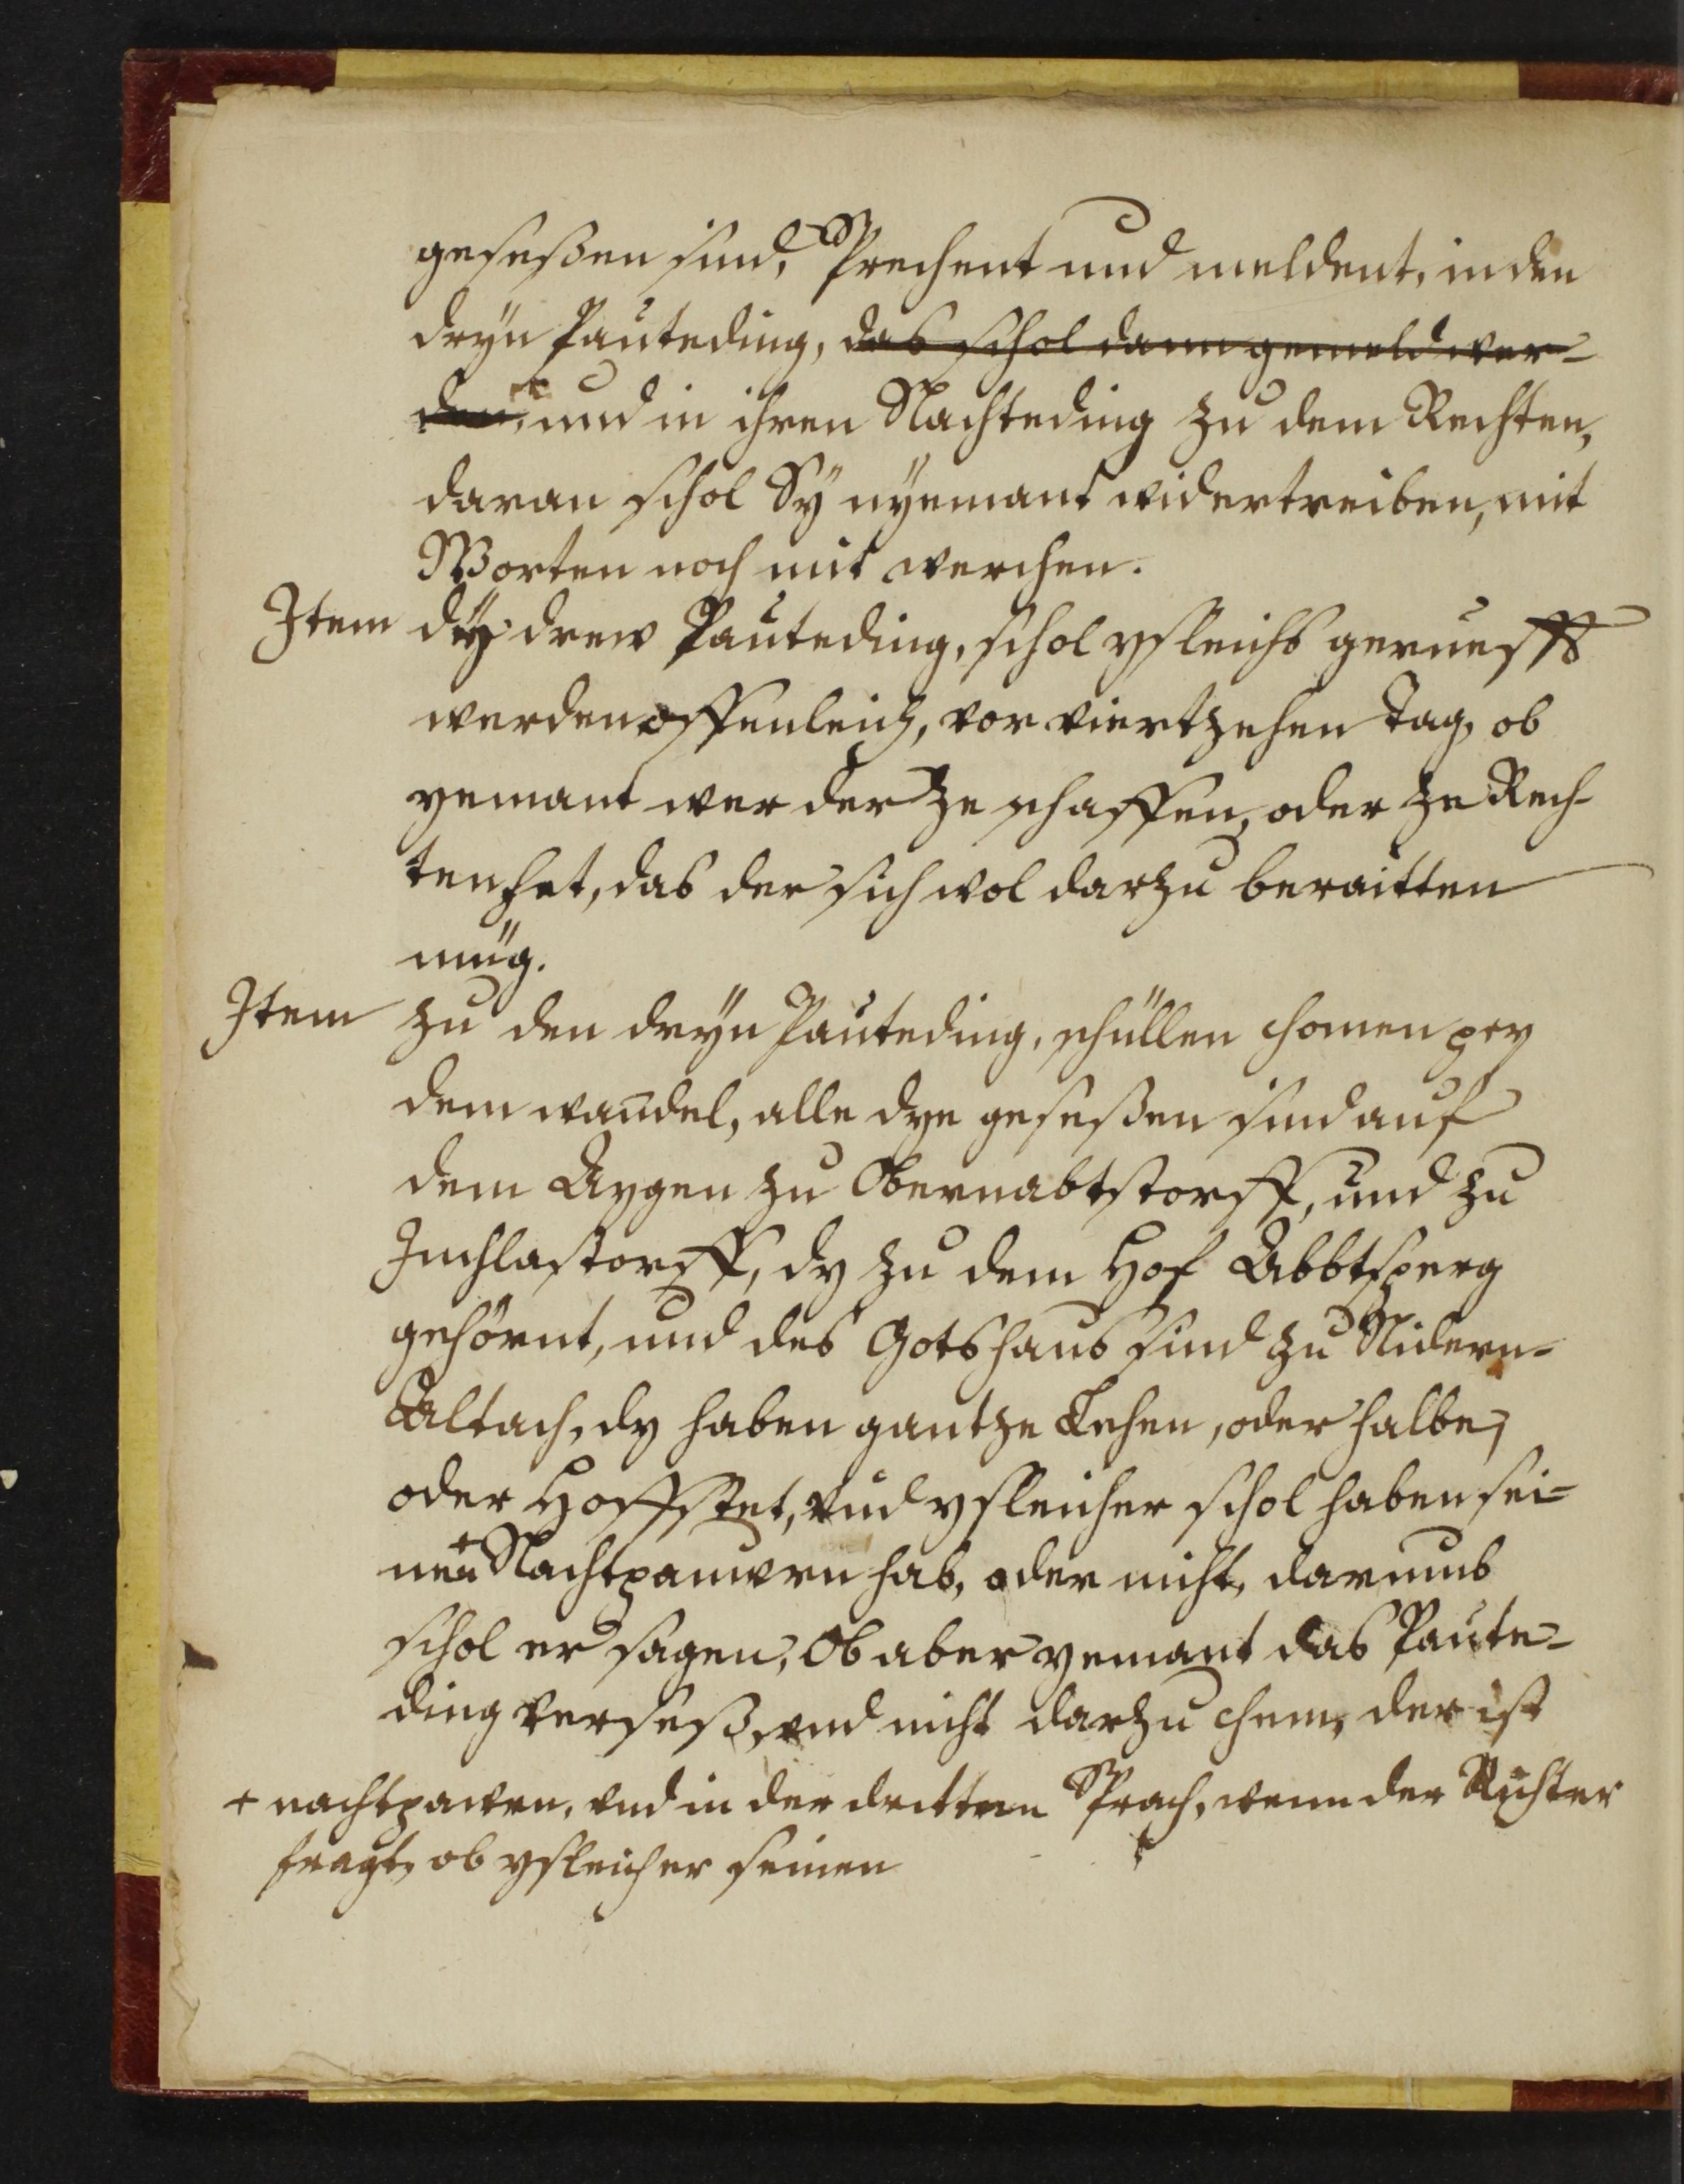 geseßen sind, Sprechent und meldent, in den
dryn Pauteding, das schol dann gemeld wer-
den, und in ihren Nachteding zu dem Rechten,
daran schol Sÿ nÿemant widertreiben, mit
Worten noch mit werchen.
Item dÿ drew Pauteding, schol ysleichs geruefft
werden offenleich, vor viertzehen Tag, ob
yemant wer der ze schaffen, oder ze Rech-
ten het, das der sich wol darzu beraitten
müg.
Item zu den dryn Pauteding, schüllen chomen pey
dem wandel, alle dye geseßen sind auf
dem Aygen zu Obernabtstorff, und zu
Inchlastorff, dy zu dem Hof Abbtsperg
gehörnt, und des Gotshaus sind zu Nidern-
Altach, dy haben gantze Lehen, oder halbe,
oder Hoffstet, vnd ysleicher schol haben sei-
nen + Nachtpauwrn hab, oder nicht, darumb
schol er sagen, Ob aber yemant das Paute-
ding verseß, vnd nicht darzu chem, der ist
+ nachtpawrn, vnd in der dritten Sprach, wenn der Richter
fragt, ob ysleicher seinen